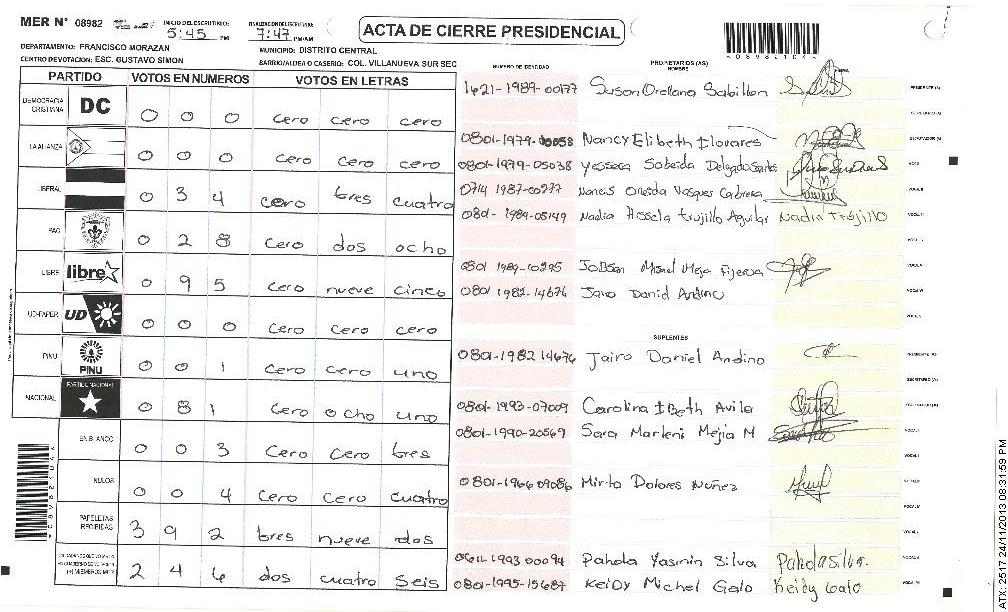 MER N° 08982
INICIO DEL ESCRUTINIO: 5:45 PM
FINALIZACION DEL ESCRUTINIO: 7:47 PM/AM
ACTA DE CIERRE PRESIDENCIAL
DEPARTAMENTO: FRANCISCO MORAZAN
MUNICIPIO: DISTRITO CENTRAL
CENTRO DE VOTACION: ESC. GUSTAVO SIMON
BARRIO/ALDEA O CASERIO: COL. VILLANUEVA SUR SEC
PARTIDO VOTOS EN NUMEROS VOTOS EN LETRAS
DEMOCRACIA CRISTIANA DC 0 0 0 cero cero cero
LA ALIANZA 0 0 0 cero cero cero
LIBERAL 0 3 4 cero tres cuatro
PAC 0 2 8 cero dos ocho
LIBRE libre 0 9 5 cero nueve cinco
UD-FAPER UD 0 0 0 cero cero cero
PINU PINU 0 0 1 cero cero uno
NACIONAL PARTIDO NACIONAL 0 8 1 cero ocho uno
EN BLANCO 0 0 3 cero cero tres
NULOS 0 0 4 cero cero cuatro
PAPELETAS RECIBIDAS 3 9 2 tres nueve dos
(+) MIEMBROS MER 2 4 6 dos cuatro seis
NUMERO DE IDENTIDAD PROPIETARIOS (AS) NOMBRE
1621-1989-00177 Suson Orellana Sabillon PRESIDENTE (A)
SECRETARIO (A)
0801-1979-00058 Nancy Elibeth ESCRUTADOR (A)
0801-1979-05038 Yesseca Sobeida Delgado Santos
0714 1987-00277 Oneida Vasques Cabrera
0801-1989-05149 Nadia Trujillo Aguilar Nadia Trujillo
0801 1989-10295 Misael Mejia
0801 1982-14676 Jairo Daniel Andino
SUPLENTES
0801-1982 14676 Jairo Daniel Andino PRESIDENTE (A)
SECRETARIO (A)
0801-1993-07009 Carolina Ibeth Avila ESCRUTADOR (A)
0801-1990-20569 Sara Marleni Mejia M
0801-1966 09086 Mirta Dolores Nuñez
1993 00094 Pahola Yasmin Silva Pahola Silva.
0801-1995-15687 Keidy Michel Galo Keidy Galo
ATX-2517 24/11/2013 08:31:59 PM